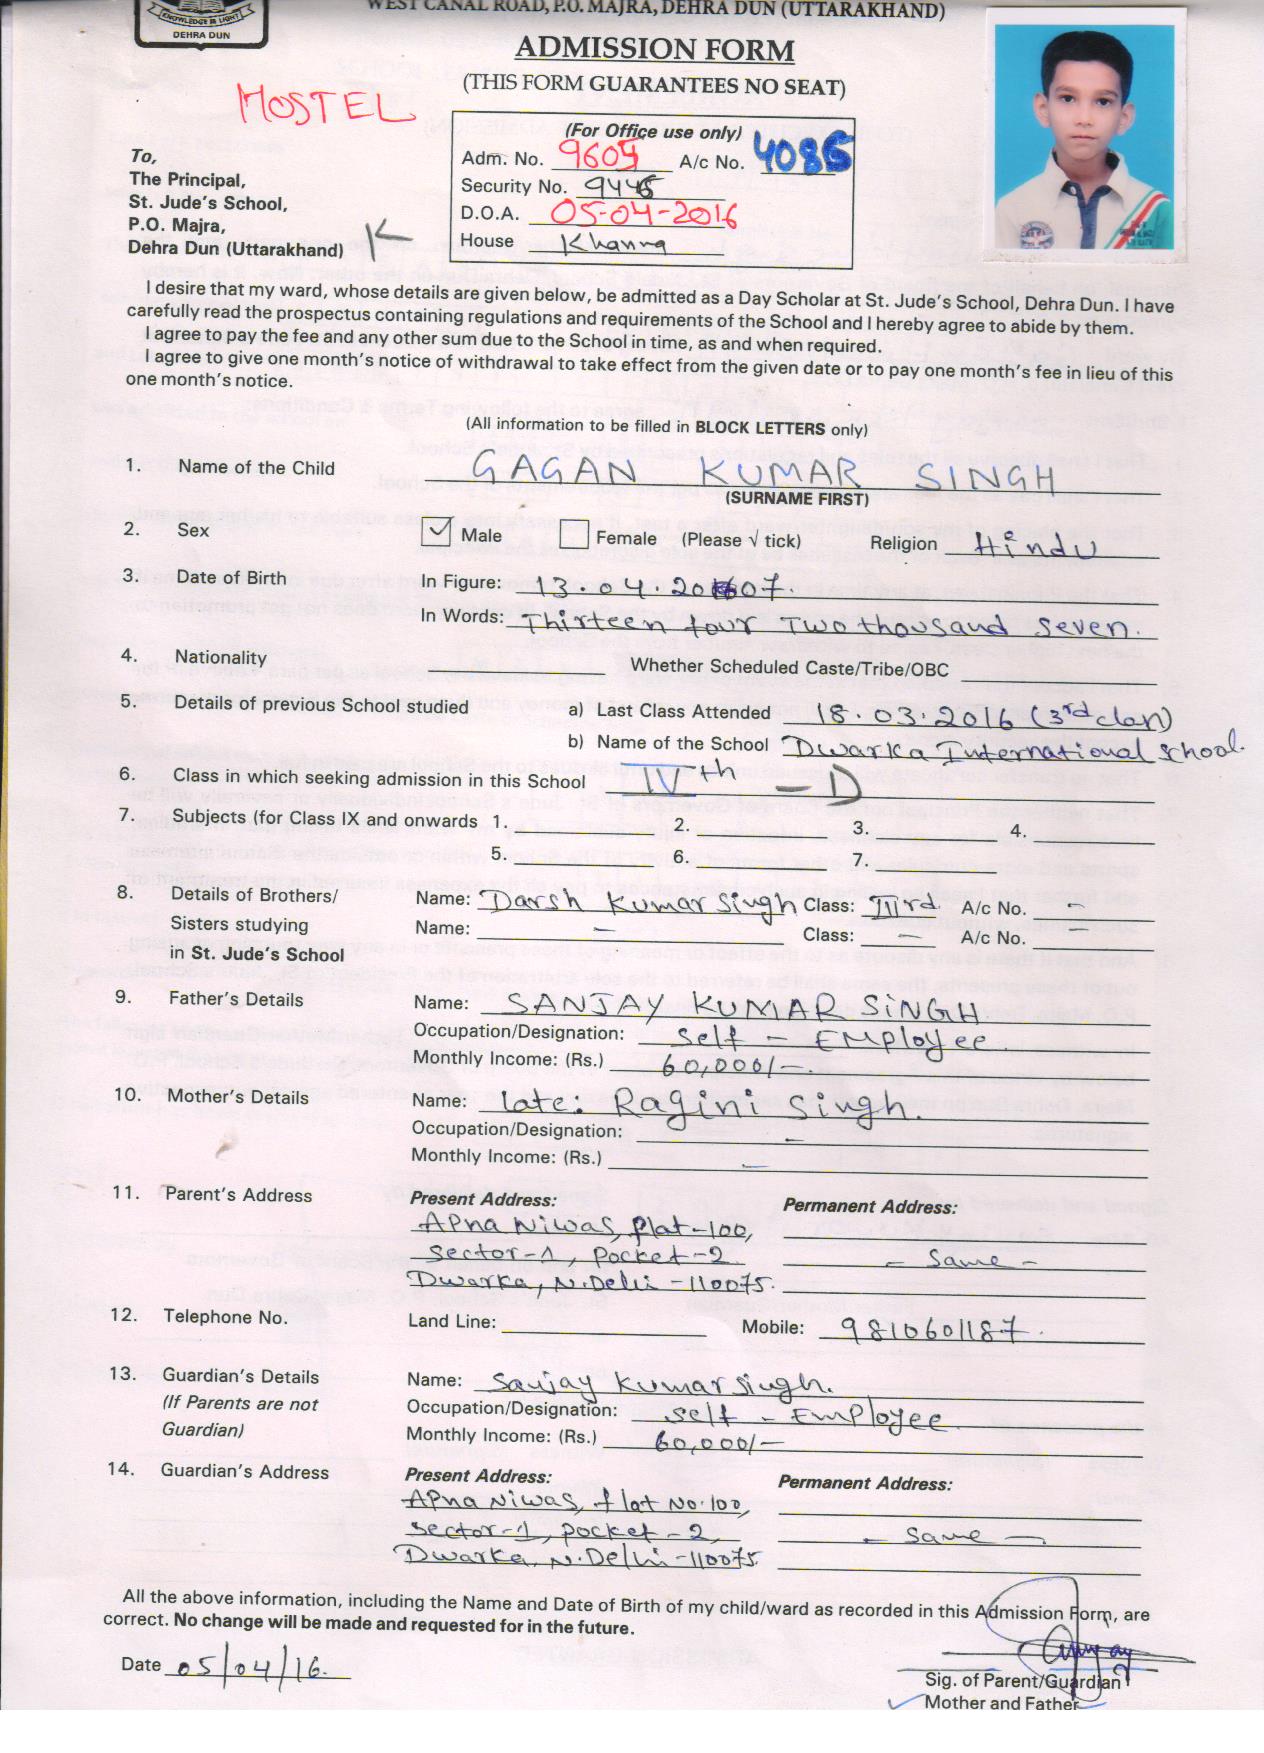 WEST CANAL ROAD, P.O. MAJRA, DEHRA DUN (UTTARAKHAND)
KNOWLEDGE IS LIGHT
DEHRA DUN
ADMISSION FORM
(THIS FORM GUARANTEES NO SEAT)
HOSTEL
(For Office use only)
Adm. No. 9605 A/c No. 4086
Security No. 9446
D.O.A. 05-04-2016
House Khanna
To,
The Principal,
St. Jude's School,
P.O. Majra,
Dehra Dun (Uttarakhand) K
I desire that my ward, whose details are given below, be admitted as a Day Scholar at St. Jude's School, Dehra Dun. I have
carefully read the prospectus containing regulations and requirements of the School and I hereby agree to abide by them.
I agree to pay the fee and any other sum due to the School in time, as and when required.
I agree to give one month's notice of withdrawal to take effect from the given date or to pay one month's fee in lieu of this
one month's notice.
(All information to be filled in BLOCK LETTERS only)
1. Name of the Child GAGAN KUMAR SINGH
(SURNAME FIRST)
2. Sex Male Female (Please √ tick) Religion Hindu
3. Date of Birth In Figure: 13.04.2007.
In Words: Thirteen four Two thousand seven.
4. Nationality Whether Scheduled Caste/Tribe/OBC
5. Details of previous School studied a) Last Class Attended 18.03.2016 (3rd class)
b) Name of the School Dwarka International school.
6. Class in which seeking admission in this School IVth - D
7. Subjects (for Class IX and onwards 1. 2. 3. 4.
5. 6. 7.
8. Details of Brothers/ Name: Darsh Kumar Singh Class: IIIrd A/c No. -
Sisters studying Name: - Class: - A/c No.
in St. Jude's School
9. Father's Details Name: SANJAY KUMAR SINGH
Occupation/Designation: Self - EMployee
Monthly Income: (Rs.) 60,000/-
10. Mother's Details Name: late: Ragini Singh.
Occupation/Designation: -
Monthly Income: (Rs.) -
11. Parent's Address Present Address: Permanent Address:
APna Niwas, flat-100,
Sector-1, Pocket-2 - Same -
Dwarka, N.Delhi-110075.
12. Telephone No. Land Line: Mobile: 9810601187.
13. Guardian's Details Name: Sanjay Kumar Singh.
(If Parents are not Occupation/Designation: Self - EMployee
Guardian) Monthly Income: (Rs.) 60,000/-
14. Guardian's Address Present Address: Permanent Address:
APna Niwas, flat No.100,
Sector-1, Pocket-2, - Same -
Dwarka, N.Delhi-110075
All the above information, including the Name and Date of Birth of my child/ward as recorded in this Admission Form, are
correct. No change will be made and requested for in the future.
Date 05/04/16.
Sig. of Parent/Guardian
Mother and Father